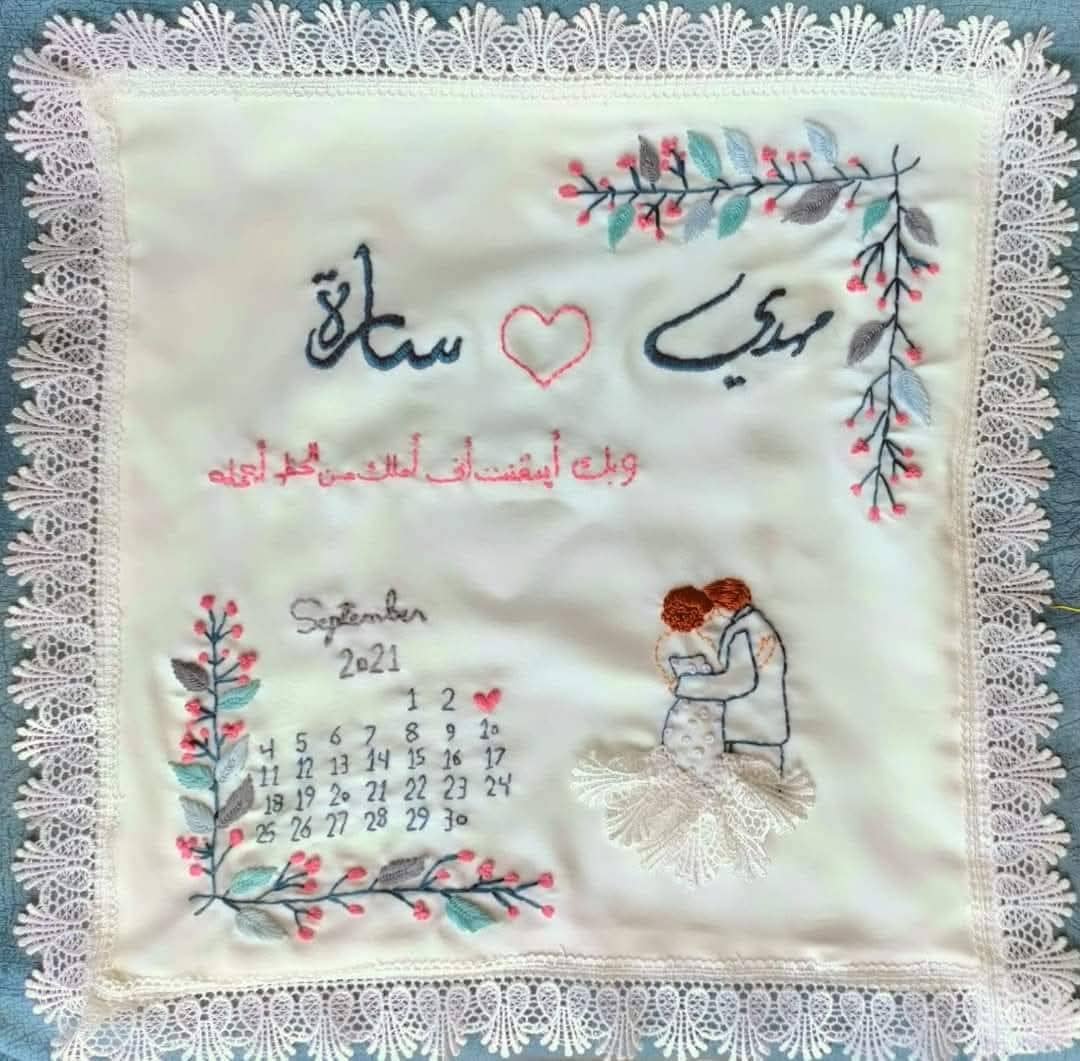 مهدي سارة
وبك أيقنت أني أملك من الحظ أجمله
September
2021
1 2
4 5 6 7 8 9 10
11 12 13 14 15 16 17
18 19 20 21 22 23 24
25 26 27 28 29 30